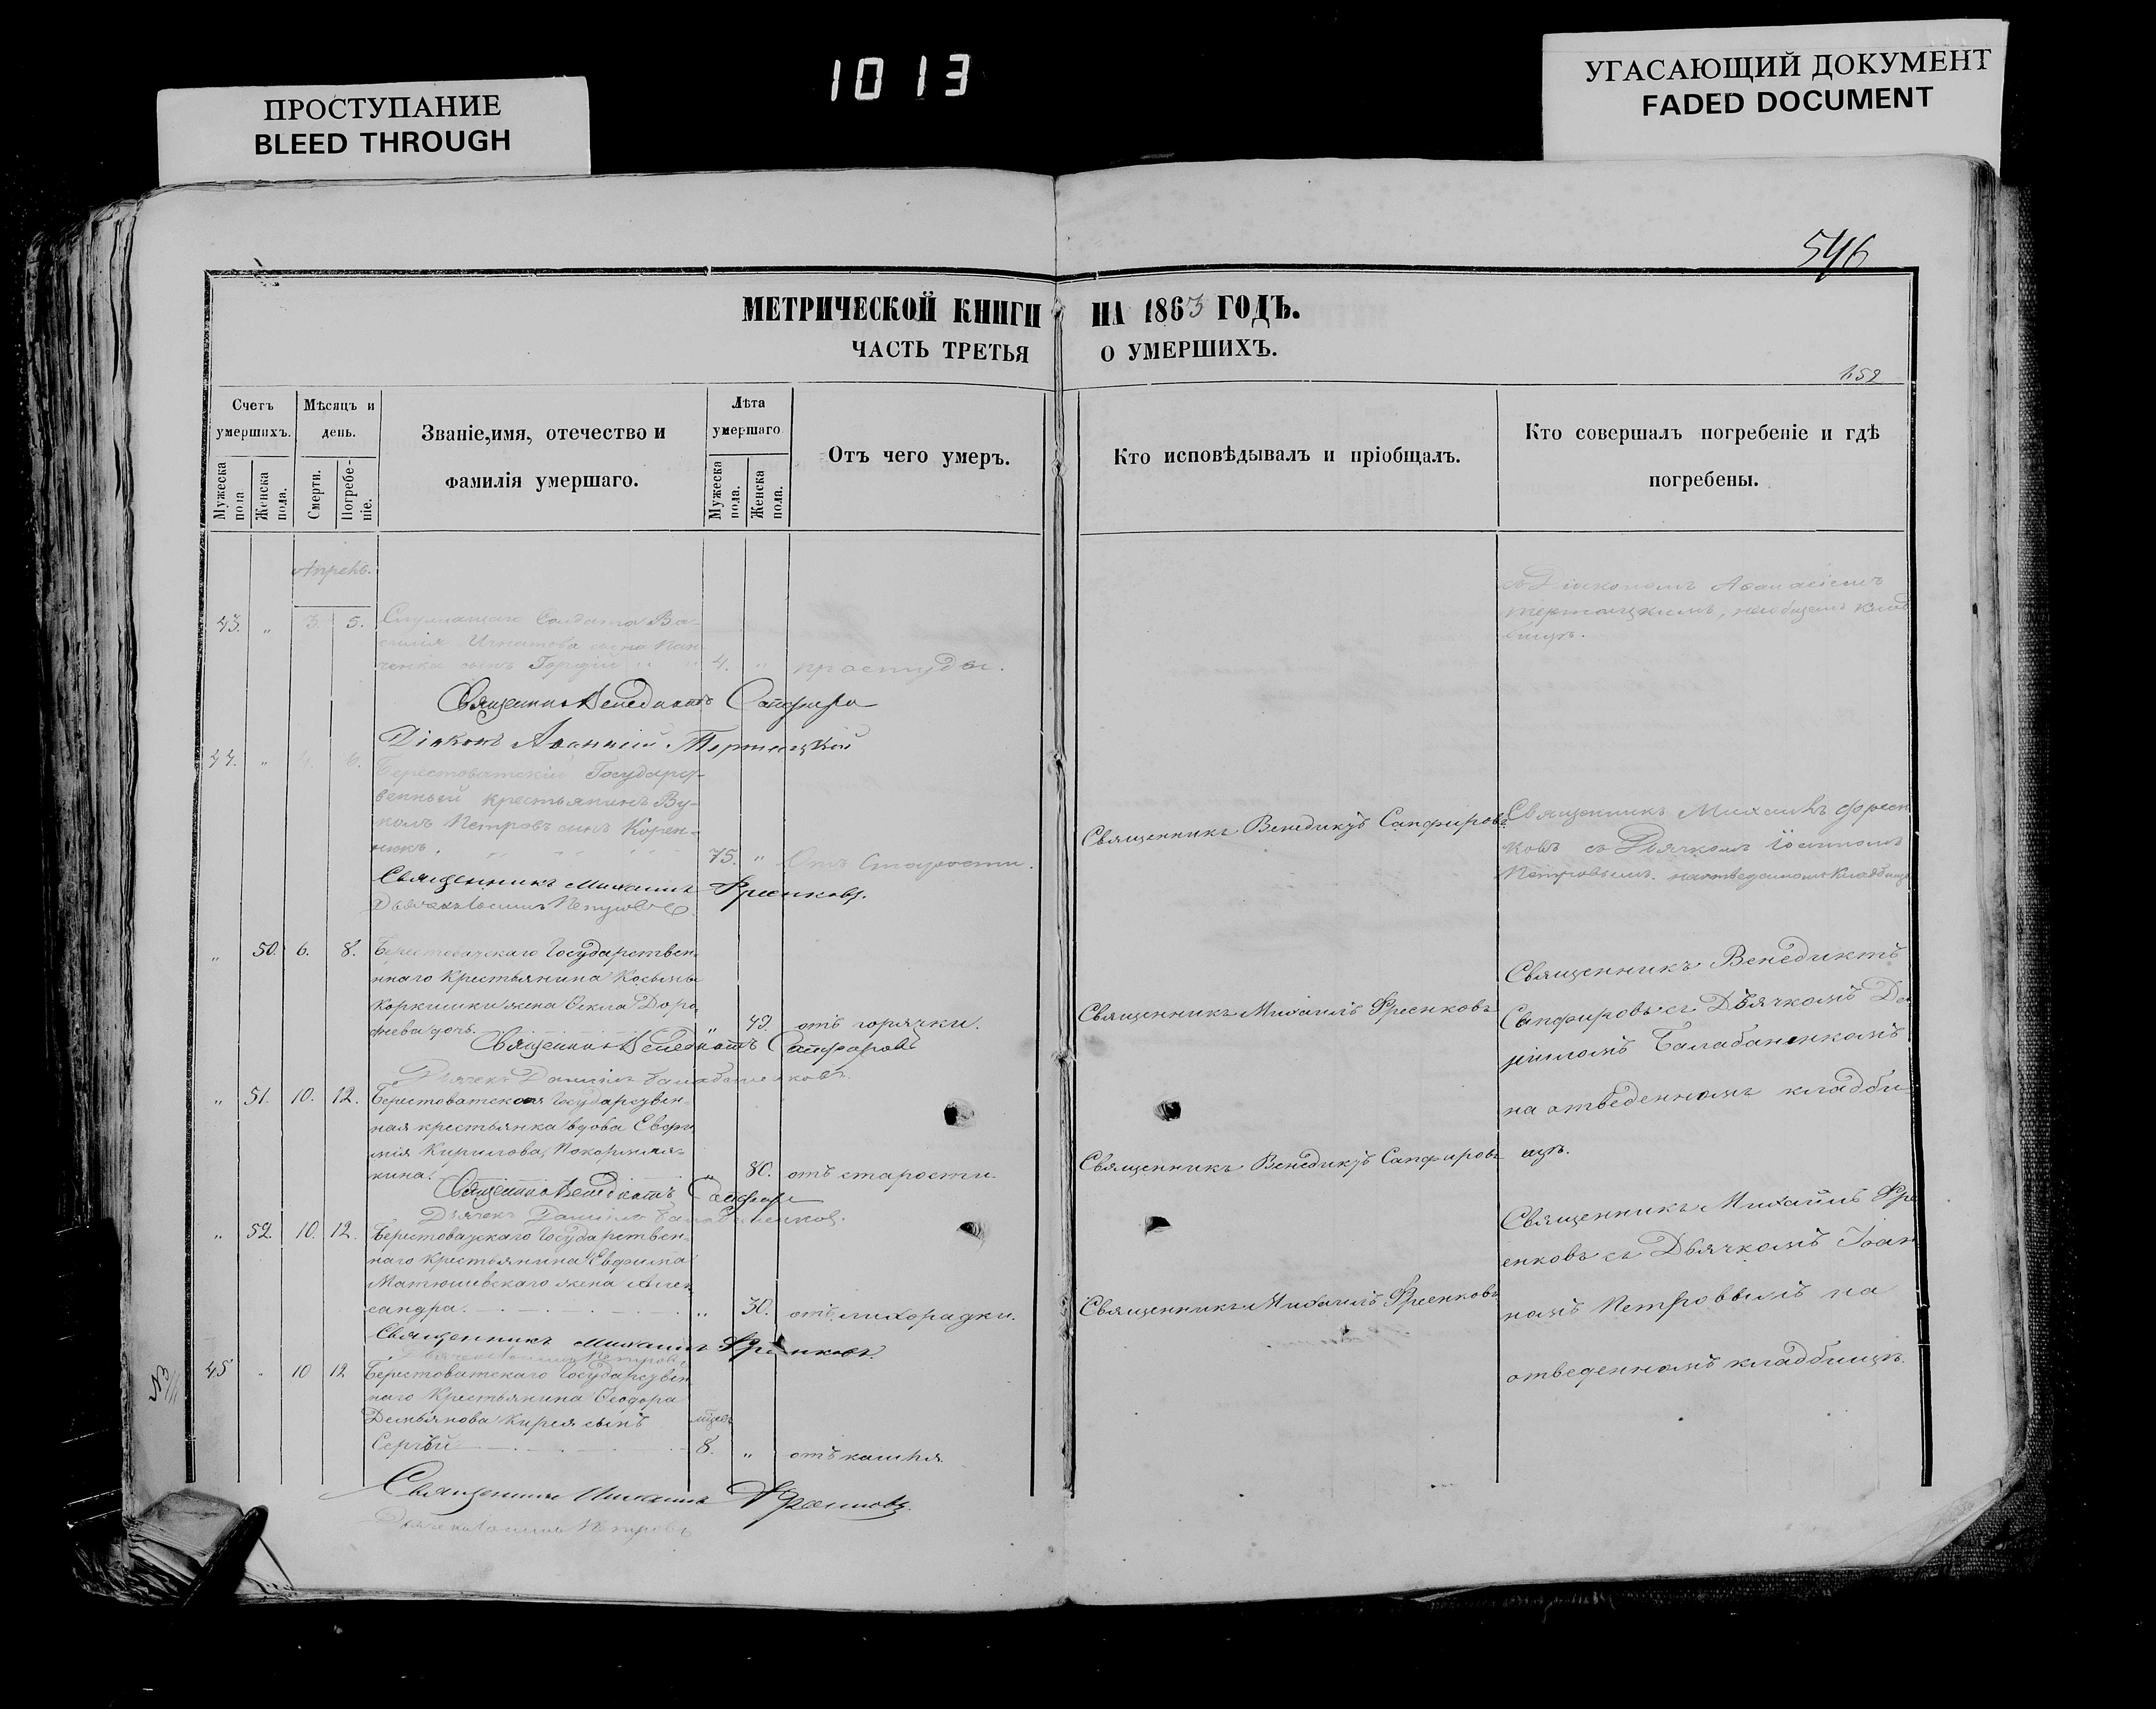 ПРОСТУПАНИЕ
BLEED THROUGH
1013
УГАСАЮЩИЙ ДОКУМЕНТ
FADED DOCUMENT
546
МЕТРИЧЕСКОЙ КНИГИ НА 1863 ГОДЪ.
ЧАСТЬ ТРЕТЬЯ О УМЕРШИХЪ.
Счетъ умершихъ.
Мужеска пола
Женска пола.
Мѣсяцъ и день.
Смерти.
Погребеніе.
Званіе,имя, отечество и
фамилія умершаго.
Лѣта умершаго
Мужеска пола.
Женска пола.
Отъ чего умеръ.
Кто исповѣдывалъ и пріобщалъ.
Кто совершалъ погребеніе и гдѣ
погребены.
43. " 3. 5. Солдата Ва-
силія Игнатова сына Пан-
ченка сынъ 4. " простуды.
съ Діакономъ Аѳанасіемъ
Священникъ Венедиктъ Сапфировъ
Діаконъ
44. " 6. Берестоватскій Государст-
венный крестьянинъ Ву-
колъ Петровъ сынъ Корен-
75. " Отъ Старости.
Священникъ Венедиктъ Сапфировъ
Священникъ Михаилъ Фреен
ковъ съ Дьячкомъ Іоанномъ
Петровымъ на отведенномъ кладбищѣ
Священникъ Михаилъ Фреенковъ.
Дьячекъ Іоаннъ Петровъ
" 50. 6. 8. Берестоватскаго Государствен-
ннаго Крестьянина Косьмы
Коркишки жена Ѳекла Доро-
фнева дочь. " 49. отъ горячки.
Священникъ Михаилъ Фреенковъ
Священникъ Венедиктъ
Сапфировъ съ Дьячкомъ Да-
ніиломъ Балабаненкомъ
на отведенномъ кладби-
щѣ.
Священникъ Венедиктъ Сапфировъ
Дьячекъ Даніилъ Балабаненковъ.
" 51. 10. 12. Берестоватская Государствен-
ная крестьянка вдова Евфи
мія Кирилова
" 80. отъ старости.
Священникъ Венедиктъ Сапфировъ
Священникъ Венедиктъ Сапфировъ
Дьячекъ Даніилъ Балабаненковъ.
" 52. 10. 12. Берестоватскаго Государствен-
наго Крестьянина Евфима
Матюшевскаго жена Алек
сандра. " 30. отъ лихорадки.
Священникъ Михаилъ Фреенковъ
Священникъ Михаилъ Фре
енковъ съ Дьячкомъ Іоан
номъ Петровымъ на
отведенномъ кладбищѣ.
Священникъ Михаилъ Фреенковъ.
Дьячекъ Іоаннъ Петровъ
45 " 10 12 Берестоватскаго Государствен
наго Крестьянина Ѳеодора
Демьянова Кирея сынъ
Сергѣй 8. " отъ кашля.
Священникъ Михаилъ Фреенковъ.
Дьячекъ Іоаннъ Петровъ